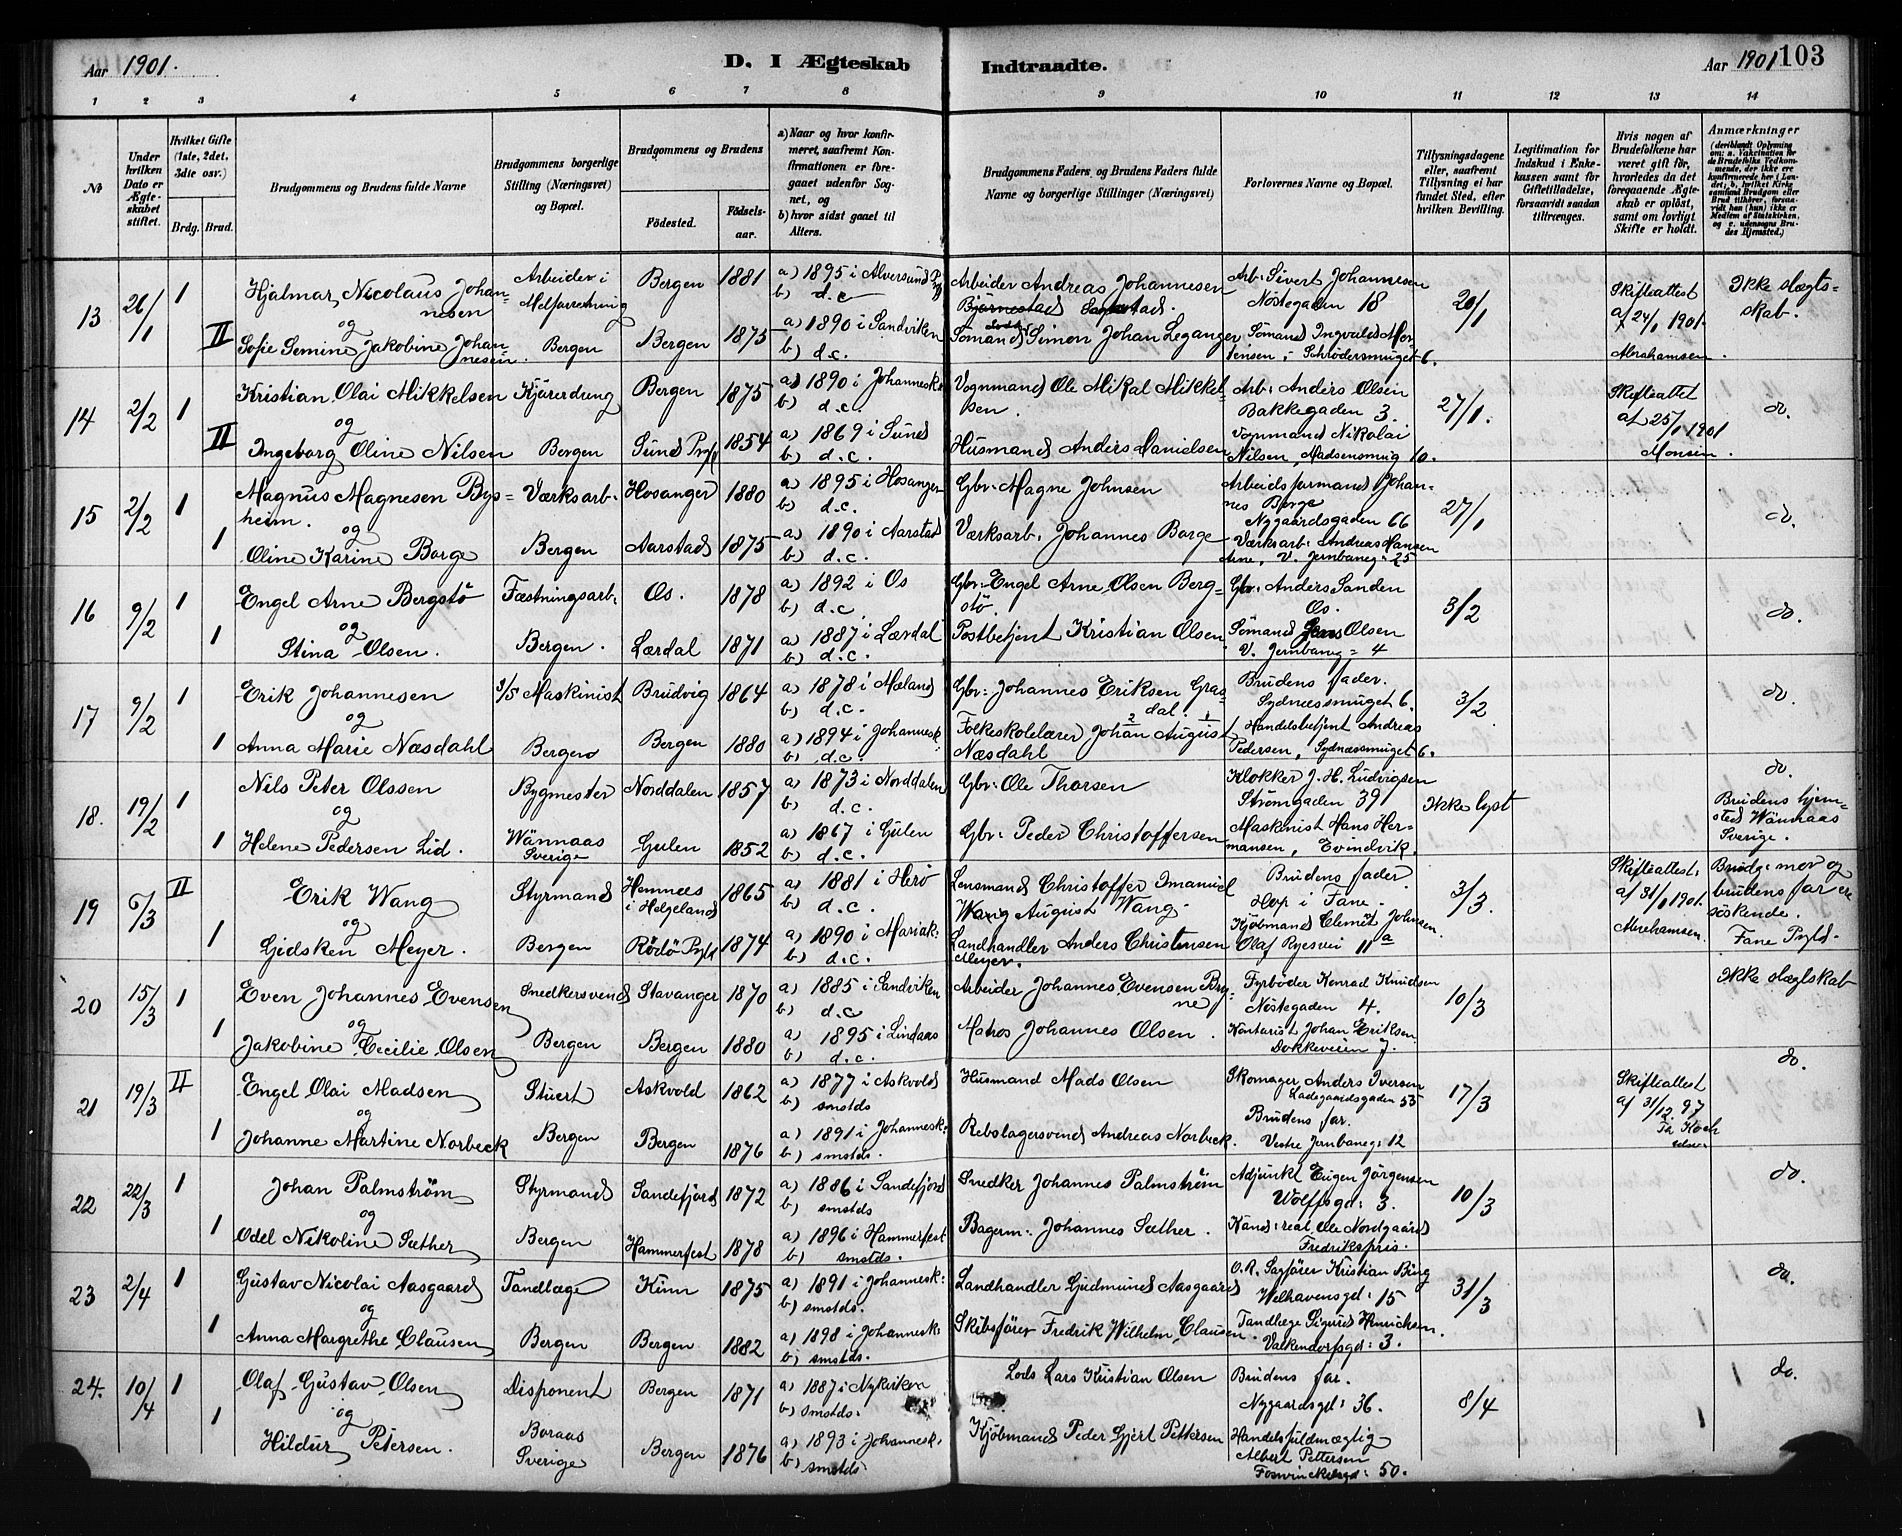 Aar 1901.
D. I Ægteskab Indtraadte.
Aar 1901 103
1 2 3 4 5 6 7 8 9 10 11 12 13 14
No
Under hvilken Dato er Ægteskabet stiftet.
Hvilket Gifte (1ste, 2det, 3die osv.)
Brdg. Brud.
Brudgommens og Brudens fulde Navne
Brudgommens borgerlige Stilling (Næringsvei) og Bopæl.
Brudgommens og Brudens
Fødested.
Fødselsaar.
a) Naar og hvor konfirmeret, saafremt Konfirmationen er foregaaet udenfor Sognet, og
b) hvor sidst gaaet til Alters.
Brudgommens Faders, og Brudens Faders fulde Navne og borgerlige Stillinger (Næringsvei)
Forlovernes Navne og Bopæl.
Tillysningsdagene eller, saafremt Tillysning ei har fundet Sted, efter hvilken Bevilling.
Legitimation for Indskud i Enkekassen samt for Giftetilladelse, forsaavidt saadan tiltrænges.
Hvis nogen af Brudefolkene har været gift før, hvorledes da det foregaaende Ægteskab er opløst, samt om lovligt Skifte er holdt.
Anmærkninger
(deriblandt Oplysning om: a. Vakcination for de Brudefolks Vedkommende, der ikke ere konfirmerede her i Landet; b. hvilket Kirkesamfund Brudgom eller Brud tilhører, forsaavidt han (hun) ikke er Medlem af Statskirken, og c. udensogns Brudes Hjemsted.)
13 26/1 1 Hjalmar Nicolaus Johannesen Arbeider i Melforretning Bergen 1881 a) 1895 i Alversund b) d.c Arbeider Andreas Johannesen Arb: Sivert Johannesen Nøstegaden 18 20/1 Skifteattest af 24/1 1901. Abrahamsen. Ikke slægtskab.
og
II Sofie Semine Jakobine Johannesen. Bergen Bergen 1875 a) 1890 i Sandviken b) d.c. Sømand Simon Johan Leganger Sømand Ingvald Mortensen, Schrödersmuget 6.
14 2/2 1 Kristian Olai Mikkelsen Kjøredreng Bergen 1875 a) 1890 i Johannesk: b) d.c. Vognmand Ole Mikal Mikkelsen. Arb: Anders Olsen Bakkegaden 3. 27/1. Skifteattet af 25/1 1901 Monsen. do.
og
II Ingeborg Oline Nilsen Bergen Sund Prgj 1854 a) 1869 i Sund b) d.c. Husmand Anders Danielsen Vognmand Nikolai Nilsen, Madsensmug 10.
15 2/2 1 Magnus Magnesen Bysheim. Værksarb: Hosanger 1880 a) 1895 i Hosanger b) d.c. Gbr: Magne Johnsen Arbeidsformand Johannes Borge Nygaardsgaden 66 27/1 do.
og
1 Oline Karine Borge Bergen Aarstad 1875 a) 1890 i Aarstad b) d.c. Værksarb: Johannes Borge Værksarb: Andreas Hansen Arne, V. Jernbaneg: 25
16 9/2 1 Engel Arne Bergstø Fæstningsarb: Os. 1878 a) 1892 i Os b) d.c. Gbr: Engel Arne Olsen Bergstø. Gbr: Anders Sanden Os. 3/2 do.
og
1 Stina Olsen. Bergen. Lærdal 1871 a) 1887 i Lærdal b) d.c. Postbetjent Kristian Olsen Sømand Jens Olsen V. Jernbaneg= 4
17 9/2 1 Erik Johannesen Maskinist Brudvig 1864 a) 1878 i Mæland b) d.c. Gbr: Johannes Eriksen Grasdal. Brudens fader. Sydnæssmuget 6. 3/2 do.
og
1 Anna Marie Næsdahl Bergen Bergen 1880 a) 1894 i Johannesk: b) d.c. Folkeskolelærer Johan August Næsdahl Handelsbetjent Andreas Pedersen, Sydnæssmuget 6.
18. 19/2 1 Nils Peter Olssen Bygmester Norddalen 1857 a) 1873 i Norddalen b) d.c. Gbr: Ole Thorsen Klokker J. H. Ludvigsen Strømgaden 39 Ikke lyst do. Brudens hjemsted Wännaas Sverige.
og
1 Helene Pedersen Lid. Wännaas Sverige Gulen 1852 a) 1867 i Gulen b) d.c. Gbr: Peder Christoffersen Maskinist Hans Hermansen, Evindvik.
19 6/3 II Erik Wang Styrmand Hemnæs i Helgeland 1865 a) 1881 i Herø b) d.c. Lensmand Christoffer Imanuel Wang August Wang Brudens fader Hop i Fane. 3/3. Skifteattest: af 31/1 1901. Abrahamsen. Brudg: mor og brudens far ere søskende. Fane Prgld.
og
1 Gjdsken Meyer. Bergen Rödö Prgld 1874 a) 1890 i Mariak: b) d.c. Landhandler Anders Christensen Meyer. Kjøbmand Clemet Johnsen. Olaf Ryesvei 11 a
20 15/3 1 Even Johannes Evensen Snedkersvend Stavanger 1870 a) 1885 i Sandviken b) d.c Arbeider Johannes Evensen Bryne Fyrbøder Konrad Knudsen Nøstegaden 4. 10/3 Ikke slægtskab
og
1 Jakobine Cecilie Olsen Bergen Bergen 1880 a) 1895 i Lindaas b) d.c. Matros Johannes Olsen. Kontorist Johan Eriksen. Dokkeveien 7.
21 19/3 II Engel Olai Madsen Stuert Askvold 1862 a) 1877 i Askvold b) smstds Husmand Mads Olsen Skomager Anders Iversen Ladegaardsgaden 55 17/3 Skifteattest af 31/12 97 do.
og
1 Johanne Martine Norbeck Bergen Bergen 1876 a) 1891 i Johannesk: b) smstds. Rebslagersvend Andreas Norbeck. Brudens far. Vestre Jernbaneg: 12
22 22/3 1 Johan Palmstrøm Styrmand Sandefjord 1872 a) 1886 i Sandefjord b) smstds Snedker Johannes Palmstrøm Adjunkt Eugen Jørgensen Wolffsgd: 3. 10/3 do.
og
1 Odel Nikoline Sæther Bergen Hammerfest 1878 a) 1896 i Hammerfest b) smstds. Bagerm: Johannes Sæther. Kand: real. Ole Nordgaard Fredrikspris.
23 2/4 1 Gustav Nicolai Aasgaard Tandlæge Kinn 1875 a) 1891 i Johannesk: b) smstds. Landhandler Gudmund Aasgaard O.R. Sagfører Kristian Bing Welhavensgd: 15 31/3 do.
og
1 Anna Margrethe Clausen Bergen Bergen 1882 a) 1898 i Johannesk: b) smstds. Skibsfører Fredrik Wilhelm Clausen. Tandlæge Sigurd Henrichsen. Valkendorfsgd: 3.
24. 10/4 1 Olaf Gustav Olsen Disponent Bergen 1871 a) 1887 i Nykirken b) smstds: Lods Lars Kristian Olsen Brudens far. Nygaardsgd: 36. 8/4 do.
og
1 Hildur Petersen. Boraas Sverige Bergen 1876 a) 1893 i Johannesk: b) smstds. Kjøbmand Peder Gjert Pettersen Handelsfuldmægtig Albert Pettersen Foswinckelsgd: 50.